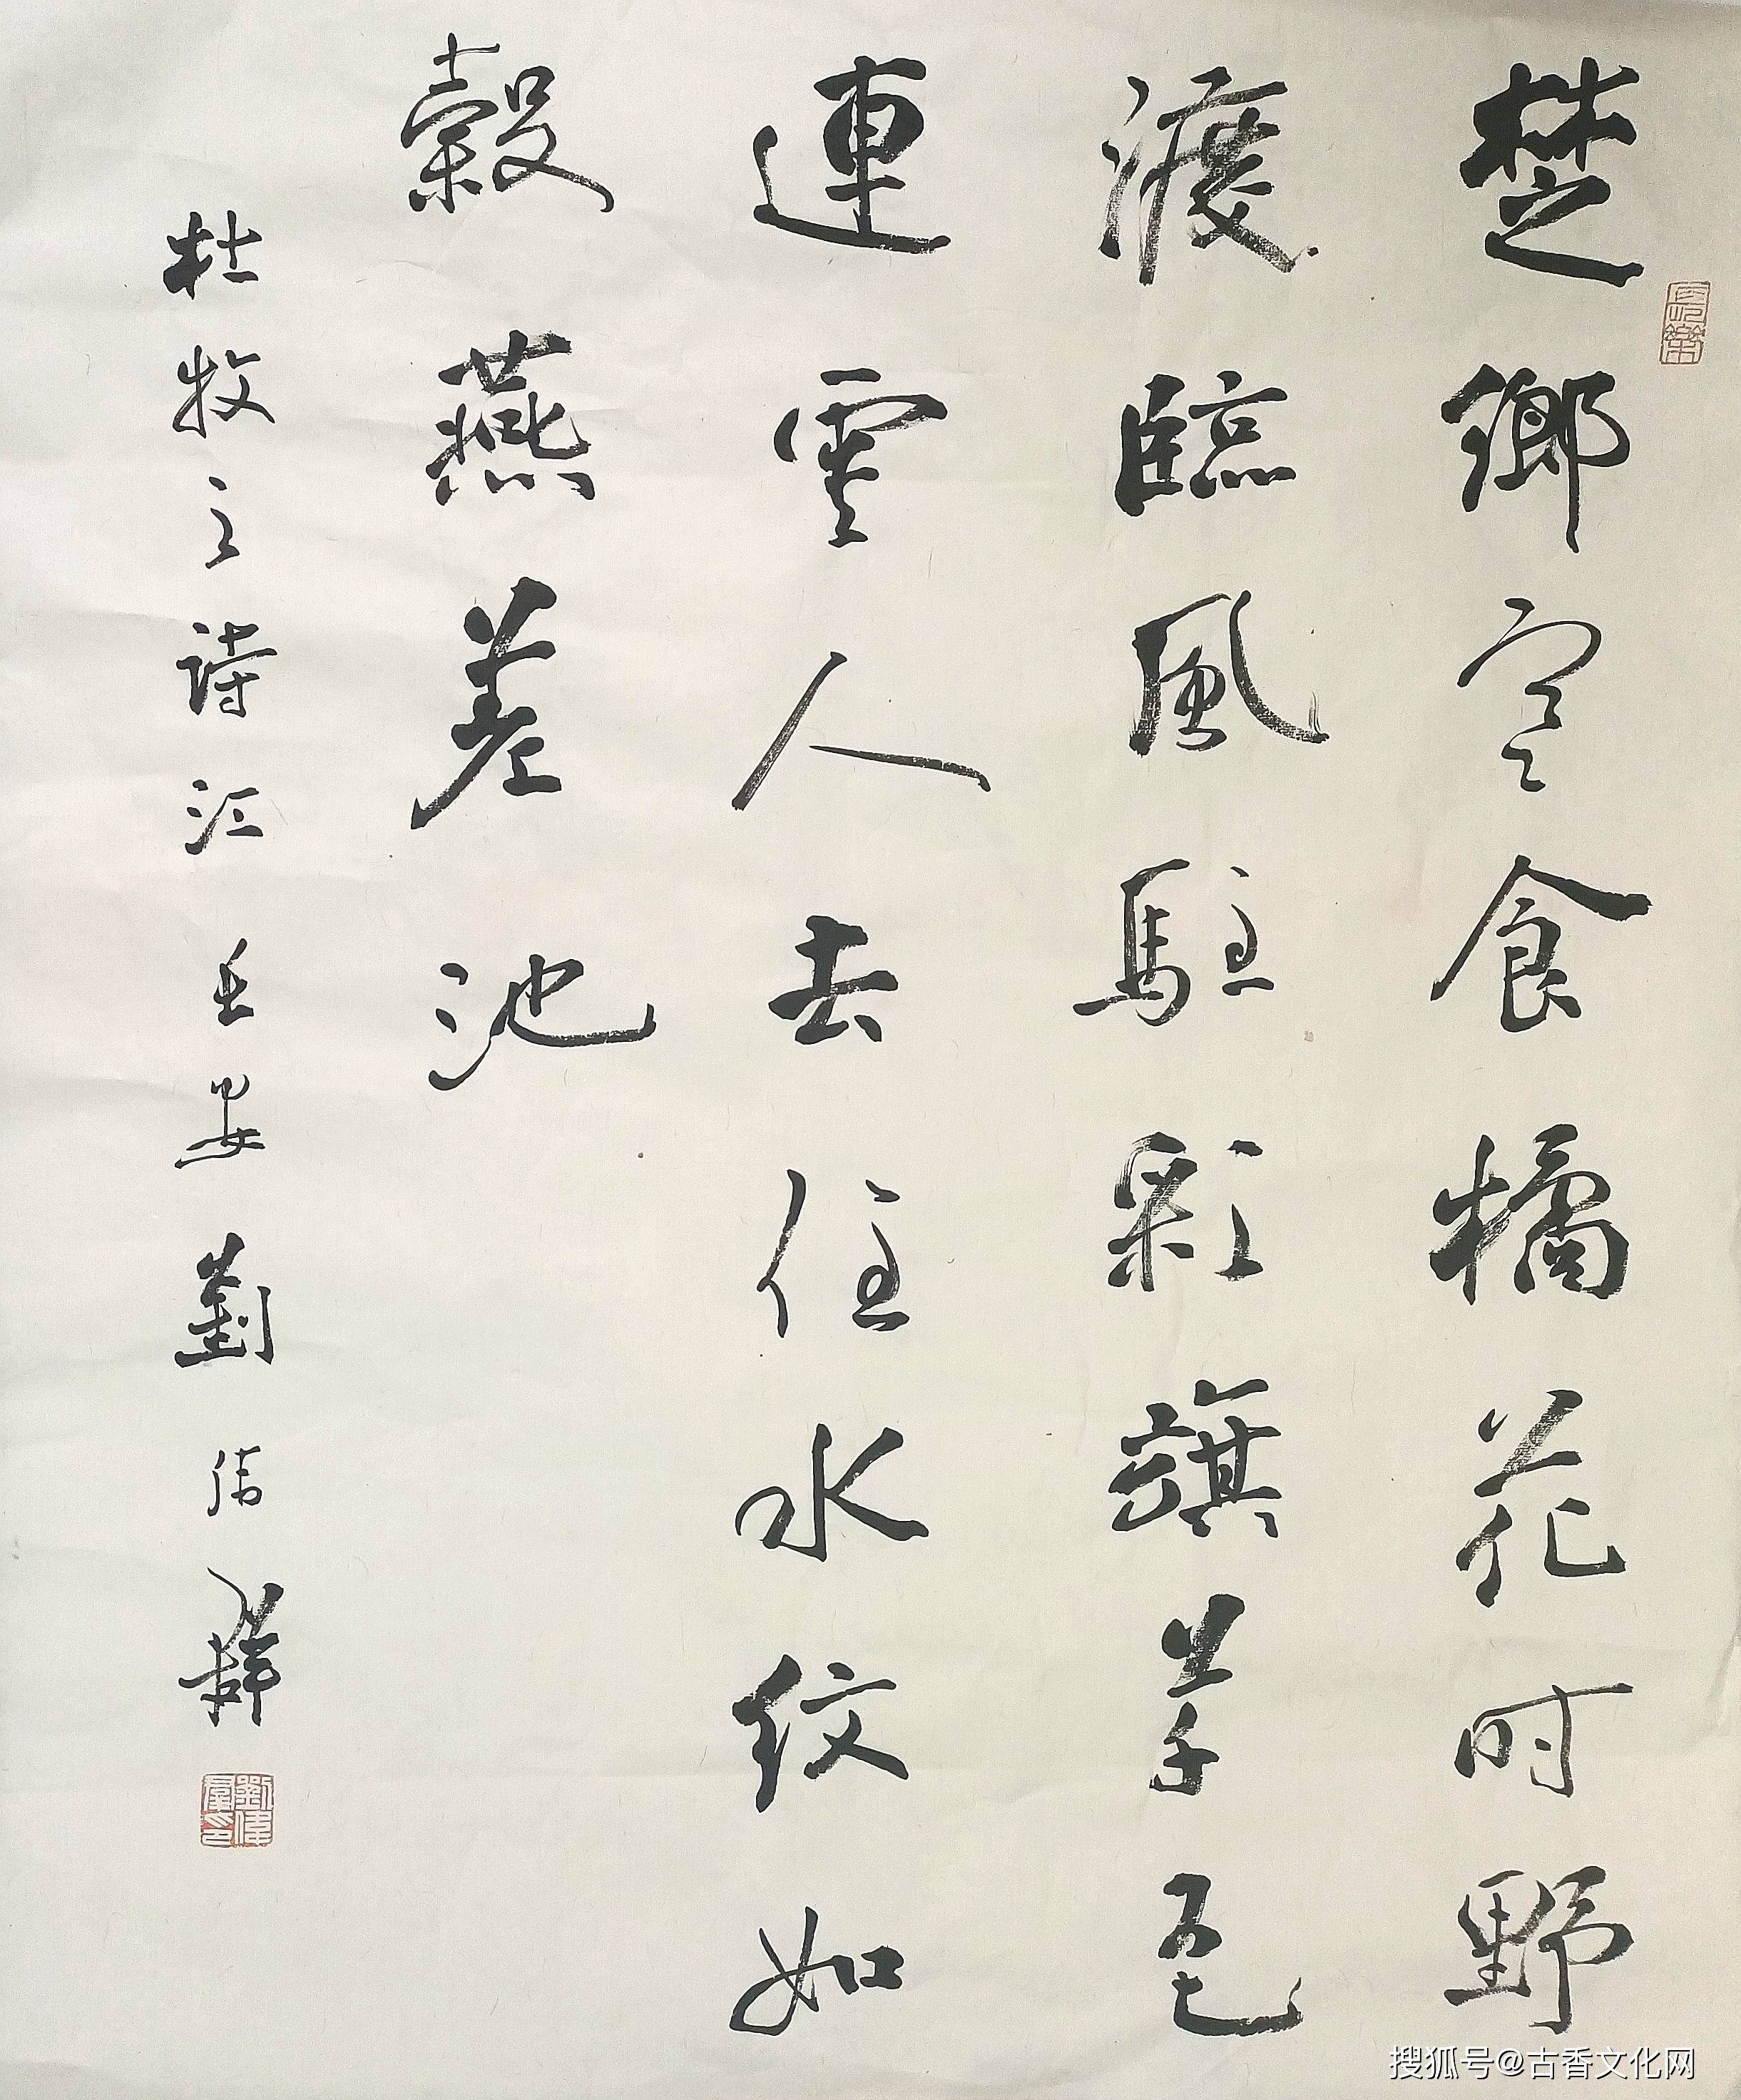 楚鄉寒食橘花时野
渡臨風駐彩旗草色
連雲人去住水紋如
縠燕差池
杜牧之詩江 劉
搜狐号@古香文化网